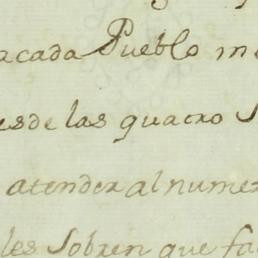 acada Pueblo m
esde las quatro S
atender al numer
les Sobren que fa